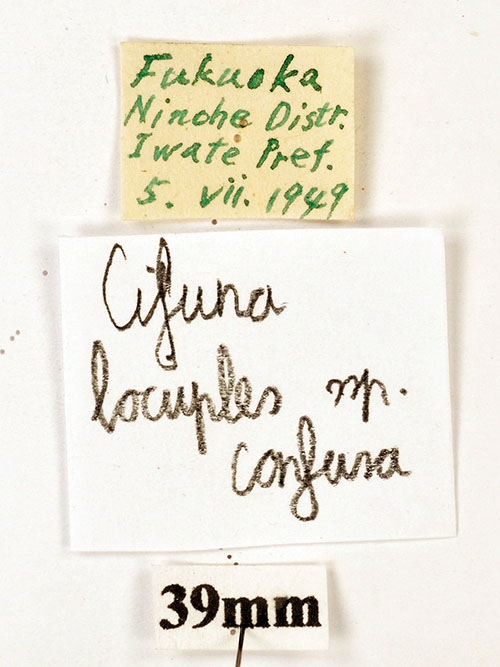 Fukuoka
Ninohe Distr.
Iwate Pref.
5. vii. 1949
Cifuna
locuples ssp.
confusa
39mm